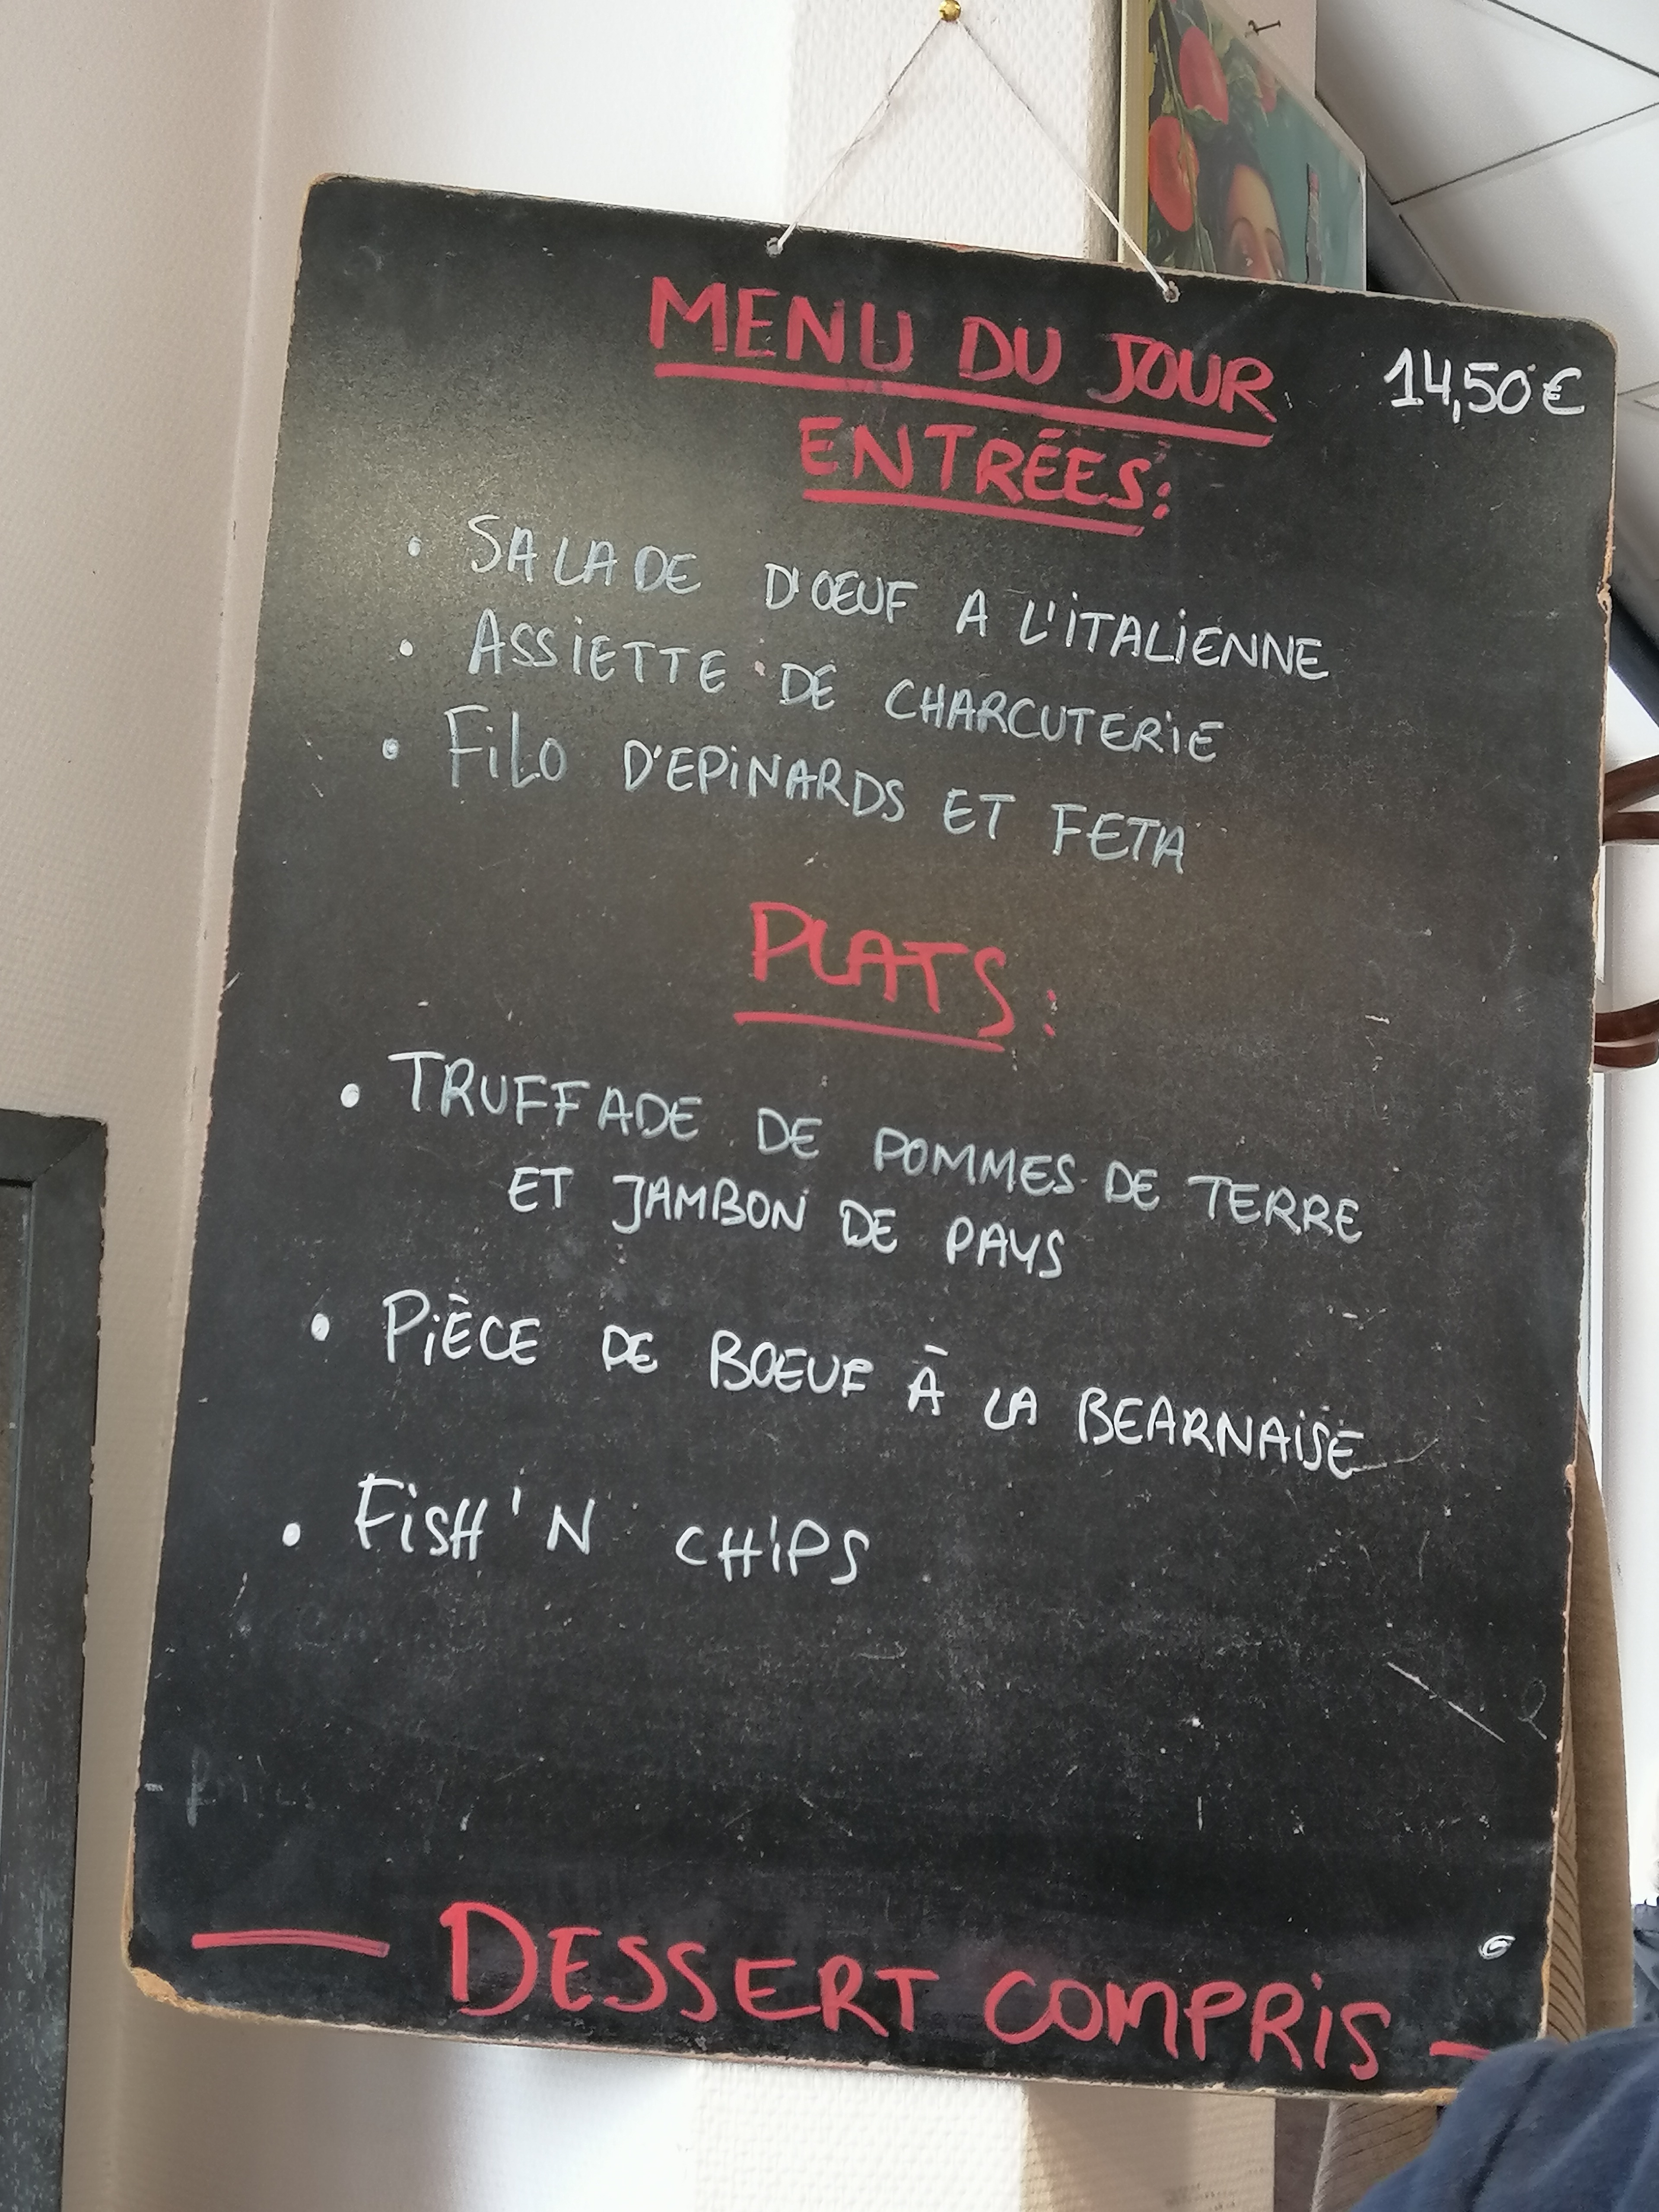 MENU DU JOUR 14,50€
ENTRÉES:
• SALADE D'ŒUF A L'ITALIENNE
• ASSIETTE DE CHARCUTERIE
• FILO D'EPINARDS ET FETA
PLATS:
• TRUFFADE DE POMMES DE TERRE
ET JAMBON DE PAYS
• PIÈCE DE BOEUF À LA BEARNAISE
• FISH'N CHIPS
— DESSERT COMPRIS —